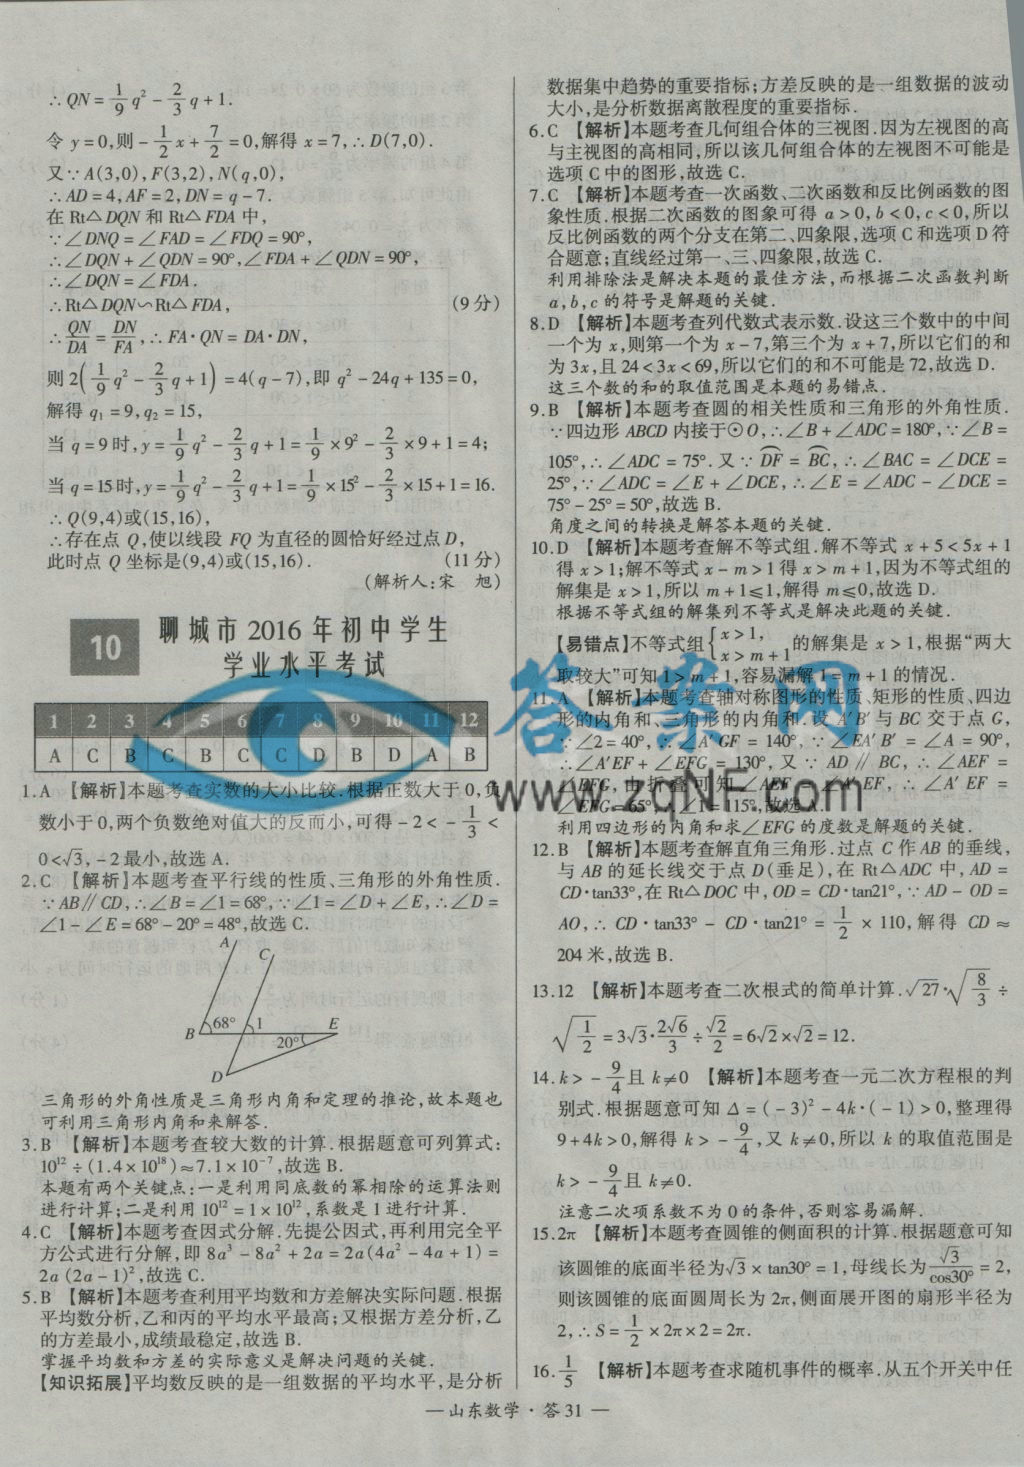 ∴QN=1/9q²-2/3q+1.
令 y=0,则-1/2x+7/2=0,解得 x=7,∴D(7,0).
又∵A(3,0),F(3,2),N(q,0),
∴AD=4,AF=2,DN=q-7.
在 Rt△DQN 和 Rt△FDA 中,
∵∠DNQ=∠FAD=∠FDQ=90°,
∴∠DQN+∠QDN=90°,∠FDA+∠QDN=90°,
∴∠DQN=∠FDA.
∴Rt△DQN∽Rt△FDA, (9分)
∴QN/DA=DN/FA,∴FA·QN=DA·DN,
则2(1/9q²-2/3q+1)=4(q-7),即 q²-24q+135=0,
解得 q₁=9,q₂=15,
当 q=9时,y=1/9q²-2/3q+1=1/9×9²-2/3×9+1=4;
当 q=15时,y=1/9q²-2/3q+1=1/9×15²-2/3×15+1=16.
∴Q(9,4)或(15,16),
∴存在点 Q,使以线段 FQ 为直径的圆恰好经过点 D,
此时点 Q 坐标是(9,4)或(15,16). (11分)
(解析人:宋 旭)
10
聊城市2016年初中学生
学业水平考试
1 2 3 4 5 6 7 8 9 10 11 12
A C B C B C C D B D A B
1.A 【解析】本题考查实数的大小比较.根据正数大于0,负
数小于0,两个负数绝对值大的反而小,可得-2<-1/3<
0<√3,-2最小,故选 A.
2.C 【解析】本题考查平行线的性质、三角形的外角性质.
∵AB∥CD,∴∠B=∠1=68°,∵∠1=∠D+∠E,∴∠D=
∠1-∠E=68°-20°=48°,故选 C.
A
C
B
68°
1
E
20°
D
三角形的外角性质是三角形内角和定理的推论,故本题也
可利用三角形内角和来解答.
3.B 【解析】本题考查较大数的计算.根据题意可列算式:
10¹²÷(1.4×10¹⁸)≈7.1×10⁻⁷,故选 B.
本题有两个关键点:一是利用同底数的幂相除的运算法则
进行计算;二是利用 10¹²=1×10¹²,系数是1进行计算.
4.C 【解析】本题考查因式分解.先提公因式,再利用完全平
方公式进行分解,即 8a³-8a²+2a=2a(4a²-4a+1)=
2a(2a-1)²,故选 C.
5.B 【解析】本题考查利用平均数和方差解决实际问题.根据
平均数分析,乙和丙的平均水平最高;又根据方差分析,乙
的方差最小,成绩最稳定,故选 B.
掌握平均数和方差的实际意义是解决问题的关键.
【知识拓展】平均数反映的是一组数据的平均水平,是分析
数据集中趋势的重要指标;方差反映的是一组数据的波动
大小,是分析数据离散程度的重要指标.
6.C 【解析】本题考查几何组合体的三视图.因为左视图的高
与主视图的高相同,所以该几何组合体的左视图不可能是
选项 C 中的图形,故选 C.
7.C 【解析】本题考查一次函数、二次函数和反比例函数的图
象性质.根据二次函数的图象可得 a>0,b<0,c<0,所以
反比例函数的两个分支在第二、四象限,选项 C 和选项 D 符
合题意;直线经过第一、三、四象限,故选 C.
利用排除法是解决本题的最佳方法,而根据二次函数判断
a,b,c 的符号是解题的关键.
8.D 【解析】本题考查列代数式表示数.设这三个数中的中间
一个为 x,则第一个为 x-7,第三个为 x+7,所以它们的和
为 3x,且 24<3x<69,所以它们的和不可能是72,故选 D.
这三个数的和的取值范围是本题的易错点.
9.B 【解析】本题考查圆的相关性质和三角形的外角性质.
∵四边形 ABCD 内接于⊙O,∴∠B+∠ADC=180°,∵∠B=
105°,∴∠ADC=75°.又∵DF⌒=BC⌒,∴∠BAC=∠DCE=
25°,∵∠ADC=∠E+∠DCE,∴∠E=∠ADC-∠DCE=
75°-25°=50°,故选 B.
角度之间的转换是解答本题的关键.
10.D 【解析】本题考查解不等式组.解不等式 x+5<5x+1
得 x>1;解不等式 x-m>1得 x>m+1,因为不等式组的
解集是 x>1,所以 m+1≤1,解得 m≤0,故选 D.
根据不等式组的解集列不等式是解决此题的关键.
【易错点】不等式组{x>1, x>m+1的解集是 x>1,根据“两大
取较大”可知1>m+1,容易漏解1=m+1的情况.
11.A 【解析】本题考查轴对称图形的性质、矩形的性质、四边
形的内角和、三角形的内角和.设 A′B′与 BC 交于点 G,
∵∠2=40°,∴∠A′GF=140°,∵∠EA′B′=∠A=90°,
∴∠A′EF+∠EFG=130°,又∵AD∥BC,∴∠AEF=
∠EFG,由折叠可知∠AEF=∠A′EF,∴∠A′EF=
∠EFG=65°,∴∠1=115°,故选 A.
利用四边形的内角和求∠EFG 的度数是解题的关键.
12.B 【解析】本题考查解直角三角形.过点 C 作 AB 的垂线,
与 AB 的延长线交于点 D(垂足),在 Rt△ADC 中,AD=
CD·tan33°,在 Rt△DOC 中,OD=CD·tan21°,∵AD-OD=
AO,∴CD·tan33°-CD·tan21°=1/2×110,解得 CD≈
204米,故选 B.
13.12 【解析】本题考查二次根式的简单计算.√27·√(8/3)÷
√(1/2)=3√3·2√6/3÷√2/2=6√2×√2=12.
14.k>-9/4且 k≠0 【解析】本题考查一元二次方程根的判
别式.根据题意可知 Δ=(-3)²-4k·(-1)>0,整理得
9+4k>0,解得 k>-9/4,又 k≠0,所以 k 的取值范围是
k>-9/4且 k≠0.
注意二次项系数不为0的条件,否则容易漏解.
15.2π 【解析】本题考查圆锥的侧面积的计算.根据题意可知
该圆锥的底面半径为√3×tan30°=1,母线长为√3/cos30°=2,
则该圆锥的底面圆周长为2π,侧面展开图的扇形半径为
2,∴S=1/2×2π×2=2π.
16.1/5 【解析】本题考查求随机事件的概率.从五个开关中任
— 山东数学·答31 —
答案网
www.zqNF.com